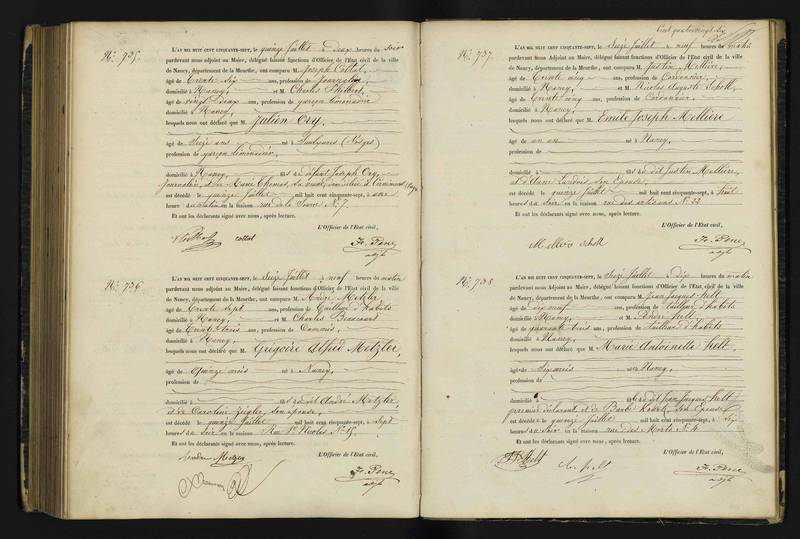 N.º 735.
L'AN MIL HUIT CENT CINQUANTE-SEPT, le quinze Juillet à deux heures du soir
pardevant nous Adjoint au Maire, délégué faisant fonctions d'Officier de l'Etat civil de la ville
de Nancy, département de la Meurthe, ont comparu M. Joseph Cottal,
âgé de trente six ans, profession de Journalier
domicilié à Nancy, et M. Charles Philbert,
âgé de vingt deux ans, profession de garçon limonadier
domicilié à Nancy,
lesquels nous ont déclaré que M. Julien Cry,
âgé de seize ans né à Saulxures (Vosges)
profession de garçon limonadier,
domicilié à Nancy, fils de défunt Joseph Cry,
Journalier, et de Marie Thomas, sa veuve, domiciliée à
est décédé le quinze Juillet mil huit cent cinquante-sept, à onze
heures du matin en la maison rue de la N.º 7.
Et ont les déclarants signé avec nous, après lecture.
L'Officier de l'Etat civil,
cottal
adjt
N.º 736.
L'AN MIL HUIT CENT CINQUANTE-SEPT, le seize Juillet à neuf heures du matin
pardevant nous Adjoint au Maire, délégué faisant fonctions d'Officier de l'Etat civil de la ville
de Nancy, département de la Meurthe, ont comparu M. André Metzler,
âgé de trente sept ans, profession de Tailleur d'habits
domicilié à Nancy, et M. Charles
âgé de trente trois ans, profession de Commis,
domicilié à Nancy,
lesquels nous ont déclaré que M. Grégoire Alfred Metzler,
âgé de quinze mois né à Nancy,
profession de
domicilié à fils de dit André Metzler,
et de Caroline Zeigler, son épouse,
est décédé le quinze Juillet mil huit cent cinquante-sept, à sept
heures du soir en la maison Rue St. Nicolas N.º 15.
Et ont les déclarants signé avec nous, après lecture.
L'Officier de l'Etat civil,
adjt
Cent quatre vingt dix
N.º 737.
L'AN MIL HUIT CENT CINQUANTE-SEPT, le seize Juillet à neuf heures du matin
pardevant nous Adjoint au Maire, délégué faisant fonctions d'Officier de l'Etat civil de la ville
de Nancy, département de la Meurthe, ont comparu M. Justin Mellière,
âgé de trente cinq ans, profession de Cordonnier,
domicilié à Nancy, et M. Nicolas Auguste
âgé de trente cinq ans, profession de Cordonnier,
domicilié à Nancy,
lesquels nous ont déclaré que M. Emile Joseph Mellière
âgé de un an né à Nancy,
profession de
domicilié à fils de dit Justin Mellière,
et d'Anne son Epouse
est décédé le quinze Juillet mil huit cent cinquante-sept, à huit
heures du soir en la maison rue des artisans N.º 33
Et ont les déclarants signé avec nous, après lecture.
L'Officier de l'Etat civil,
adjt
N.º 738
L'AN MIL HUIT CENT CINQUANTE-SEPT, le seize Juillet à dix heures du matin
pardevant nous Adjoint au Maire, délégué faisant fonctions d'Officier de l'Etat civil de la ville
de Nancy, département de la Meurthe, ont comparu M. Jean Jacques Helt
âgé de ans, profession de Tailleur d'habits
domicilié à Nancy, et M. André Helt,
âgé de quarante trois ans, profession de Tailleur d'habits
domicilié à Nancy,
lesquels nous ont déclaré que M. Marie Antoinette Helt,
âgé de six mois née à Nancy,
profession de
domicilié à fille de dit Jean Jacques Helt
premier déclarant et de Barbe son Epouse
est décédée le quinze Juillet mil huit cent cinquante-sept, à six
heures du soir en la maison rue des Morts N.º 4
Et ont les déclarants signé avec nous, après lecture.
L'Officier de l'Etat civil,
adjt